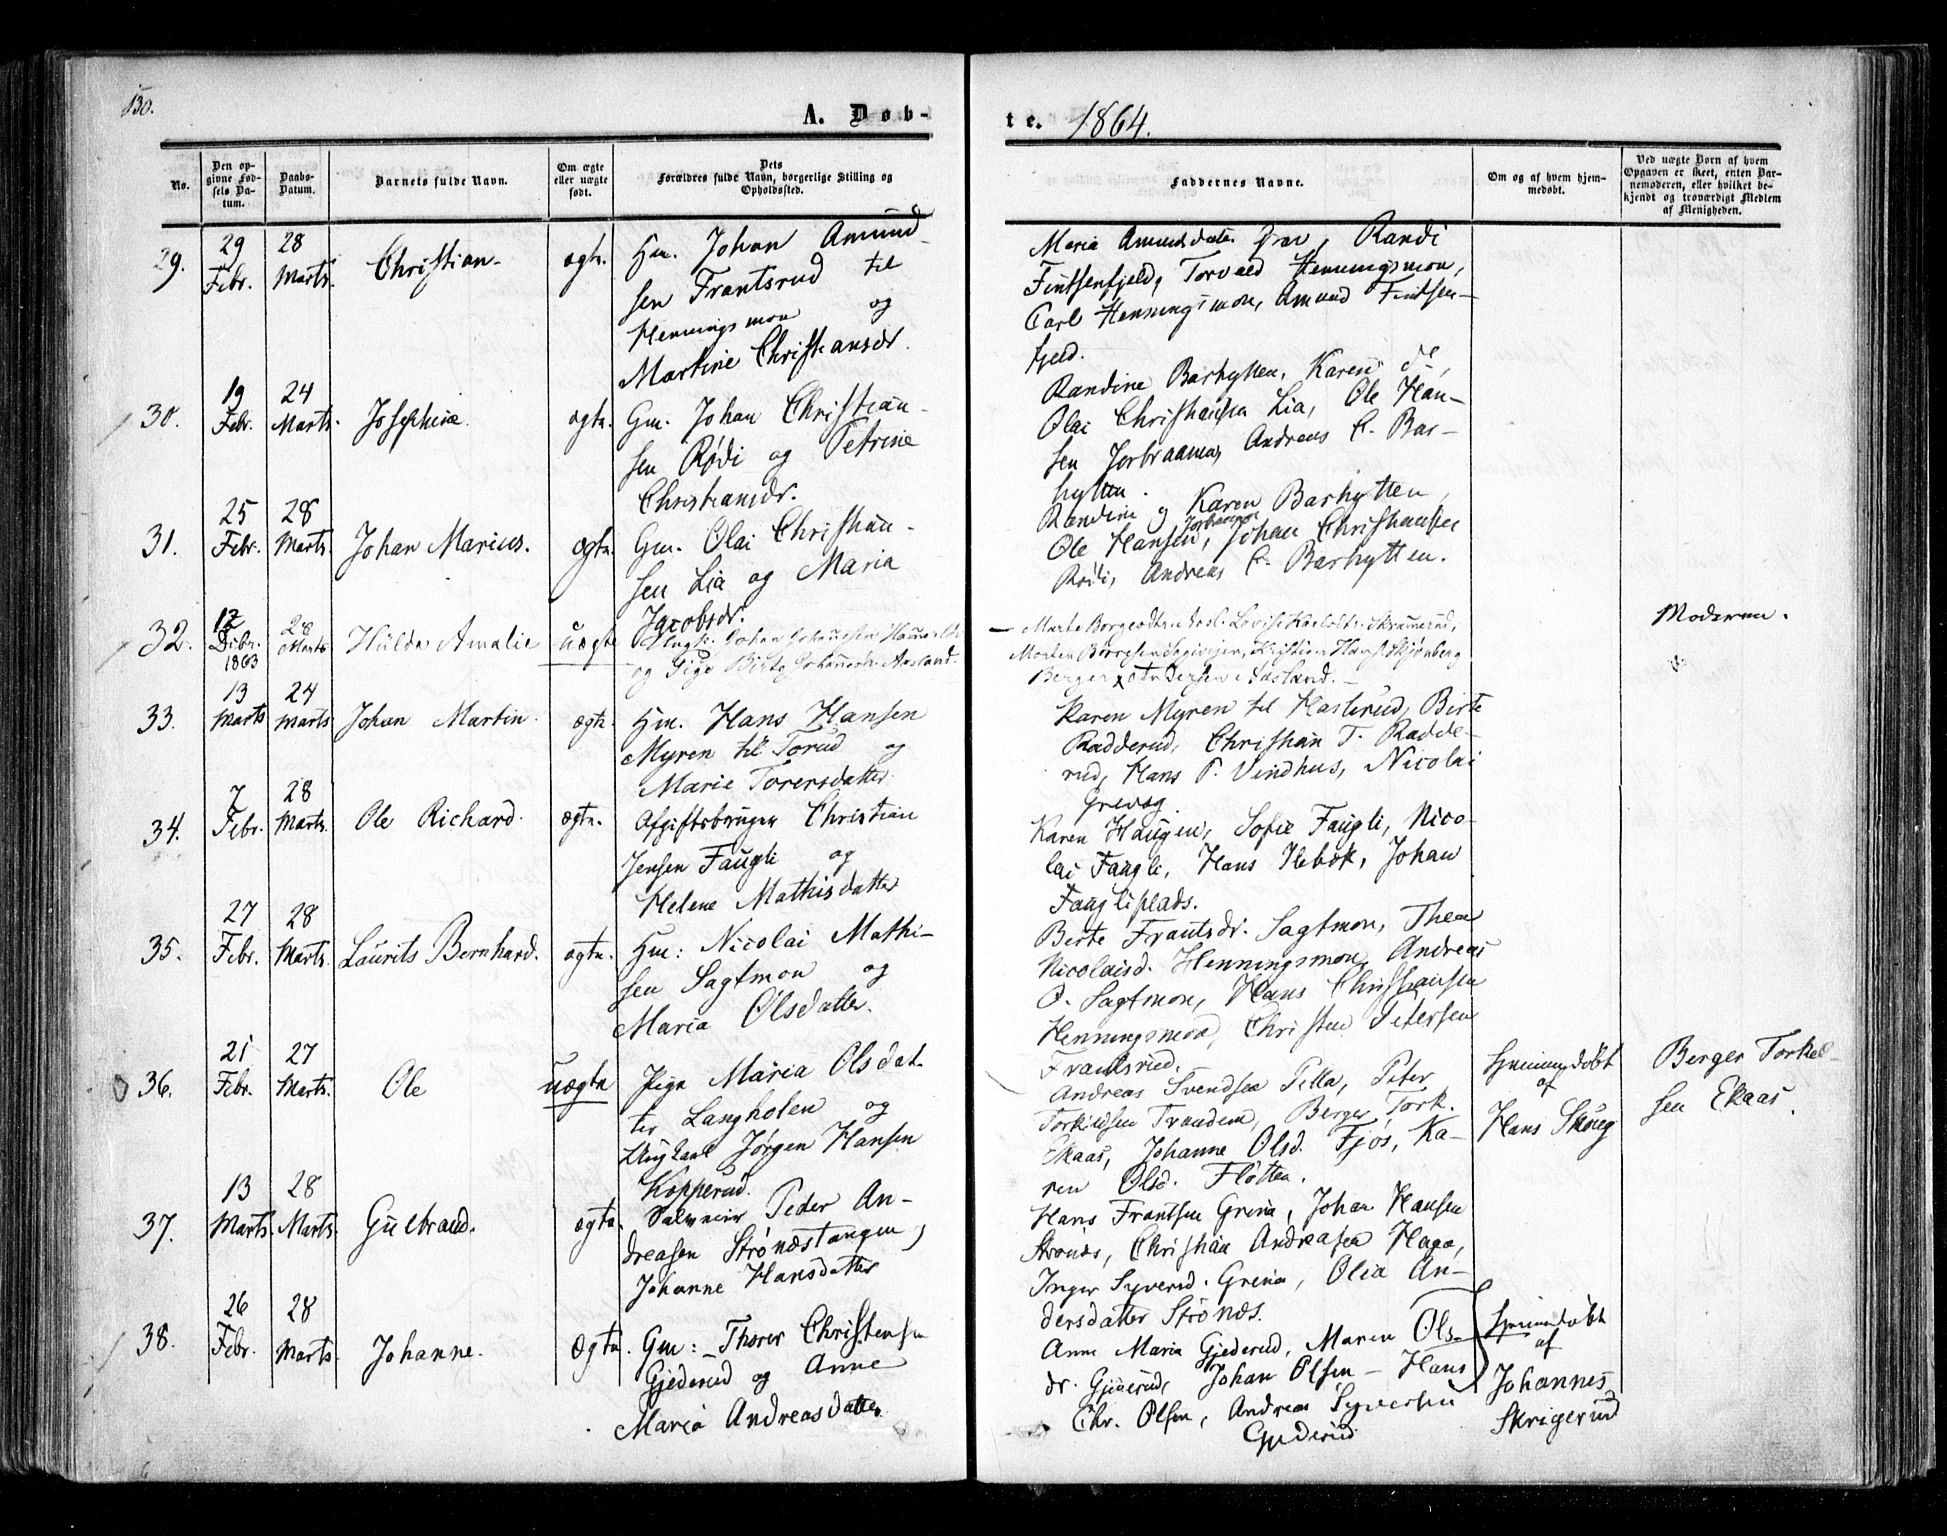 130.
A. Døb-
te. 1864.
No.
Den op-
givne Fød-
sels Da-
tum.
Daabs-
Datum.
Barnets fulde Navn.
Om ægte
eller uægte
født.
Dets
Forældres fulde Navn, borgerlige Stilling og
Opholdssted.
Faddernes Navne.
Om og af hvem hjem-
medøbt.
Ved uægte Børn af hvem
Opgaven er skeet, enten Bar-
nemoderen, eller hvilket be-
kjendt og troværdigt Medlem
af Menigheden.
29. 29 Febr. 28 Marts. Christian ægte.
Hm. Johan Amund-
sen Frantsrud til
Henningsmon og
Martine Christiansdr.
Maria Amundsdatter, Randi
Findsenfjeld, Torvald Henningsmon,
Carl Henningsmon, Amund Findsen-
fjeld.
30. 19 Febr. 24 Marts. Josephine. ægte.
Gm. Johan Christian-
sen Rødi og Petrine
Christiansdr.
Randine Barhytten, Karen do,
Olai Christiansen Lia, Ole Han-
sen Andreas C. Bar-
hytten.
31. 25 Febr. 28 Marts. Johan Marius. ægte.
Gm. Olai Christian-
sen Lia og Maria
Jacobsdr.
Randine og Karen Barhytten,
Ole Hansen, Johan Christiansen
Rødi, Andreas C. Barhytten.
32. 12 Decbr. 1863 28 Marts Hulda Amalie uægte
Ungk. Johan Johannesen
og Pige Birte Johannesdr. Aasland.
Marte Borgersdtr. Lovise Karlsdtr. Skramrud,
Morten Børresen Sagvejen, Kristian Hans. Skjønberg
Berger Andersen Aasland.
Moderen.
33. 13 Marts 24 Marts Johan Martin. ægte.
Hm. Hans Hansen
Myren til Torud og
Marie Torersdatter.
Karen Myren til Hasterud, Birte
Radderud, Christian T. Radde-
rud, Hans P. Vindhus, Nicolai
Grevåg.
34. 7 Febr. 28 Marts. Ole Richard. ægte.
Afgiftsbruger Christian
Jensen Faugli og
Helene Mathisdatter
Karen Haugen, Sofie Faugli, Nico-
lai Faugli, Hans Ilebæk, Johan
Faugliplads.
35. 27 Febr. 28 Marts. Laurits Bernhard. ægte.
Hm: Nicolai Mathi-
sen Sagtmon og
Maria Olsdatter.
Birte Frantsdr. Sagtmon, Thea
Nicolaisd. Henningsmon, Andreas
O. Sagtmon, Hans Christiansen
Henningsmon, Christen Petersen
Frantsrud.
36. 21 Febr. 27 Marts. Ole uægte
Pige Maria Olsdat-
ter Langholen og
Ungkarl Jørgen Hansen
Kopperud.
Andreas Svendsen Tella, Peter
Torkildsen Trandem, Berger Tork.
Ekaas, Johanne Olsd. Fjøs, Ka-
ren Olsd. Fløtten.
Hjemmedøbt
af
Hans Skoug
Berger Torkel-
sen Ekaas.
37. 13 Marts. 28 Marts. Gulbrand. ægte.
Peder An-
dreasen Strøndstangen,
Johanne Hansdatter
Hans Frantsen Grena, Johan Hansen
Strønæs, Christian Andreasen Haga,
Inger Syversd. Grena, Olia An-
dersdatter Strønæs.
38. 26 Febr. 28 Marts. Johanne. Ægte.
Gm: Thorer Christensen
Gjederud og Anne
Maria Andreasdatter.
Anne Maria Gjederud, Maren Ols-
dr. Gjederud, Johan Olsen - Hans
Chr. Olsen, Andreas Syversen
Gjederud
Hjemmedøbt
af
Johannes
Skrigerud